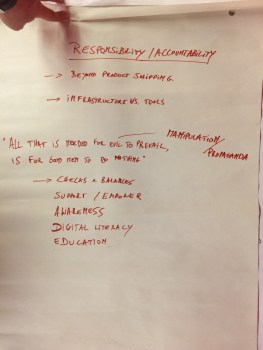 RESPONSIBILITY / ACCOUNTABILITY
→ BEYOND PRODUCT SHIPPING.
→ INFRASTRUCTURE VS. TOOLS
"ALL THAT IS NEEDED FOR EVIL TO PREVAIL,
IS FOR GOOD MEN TO DO NOTHING"
MANIPULATION/
PROPAGANDA
→ CHECKS & BALANCES
SUPPORT / EMPOWER
AWARENESS
DIGITAL LITERACY
EDUCATION